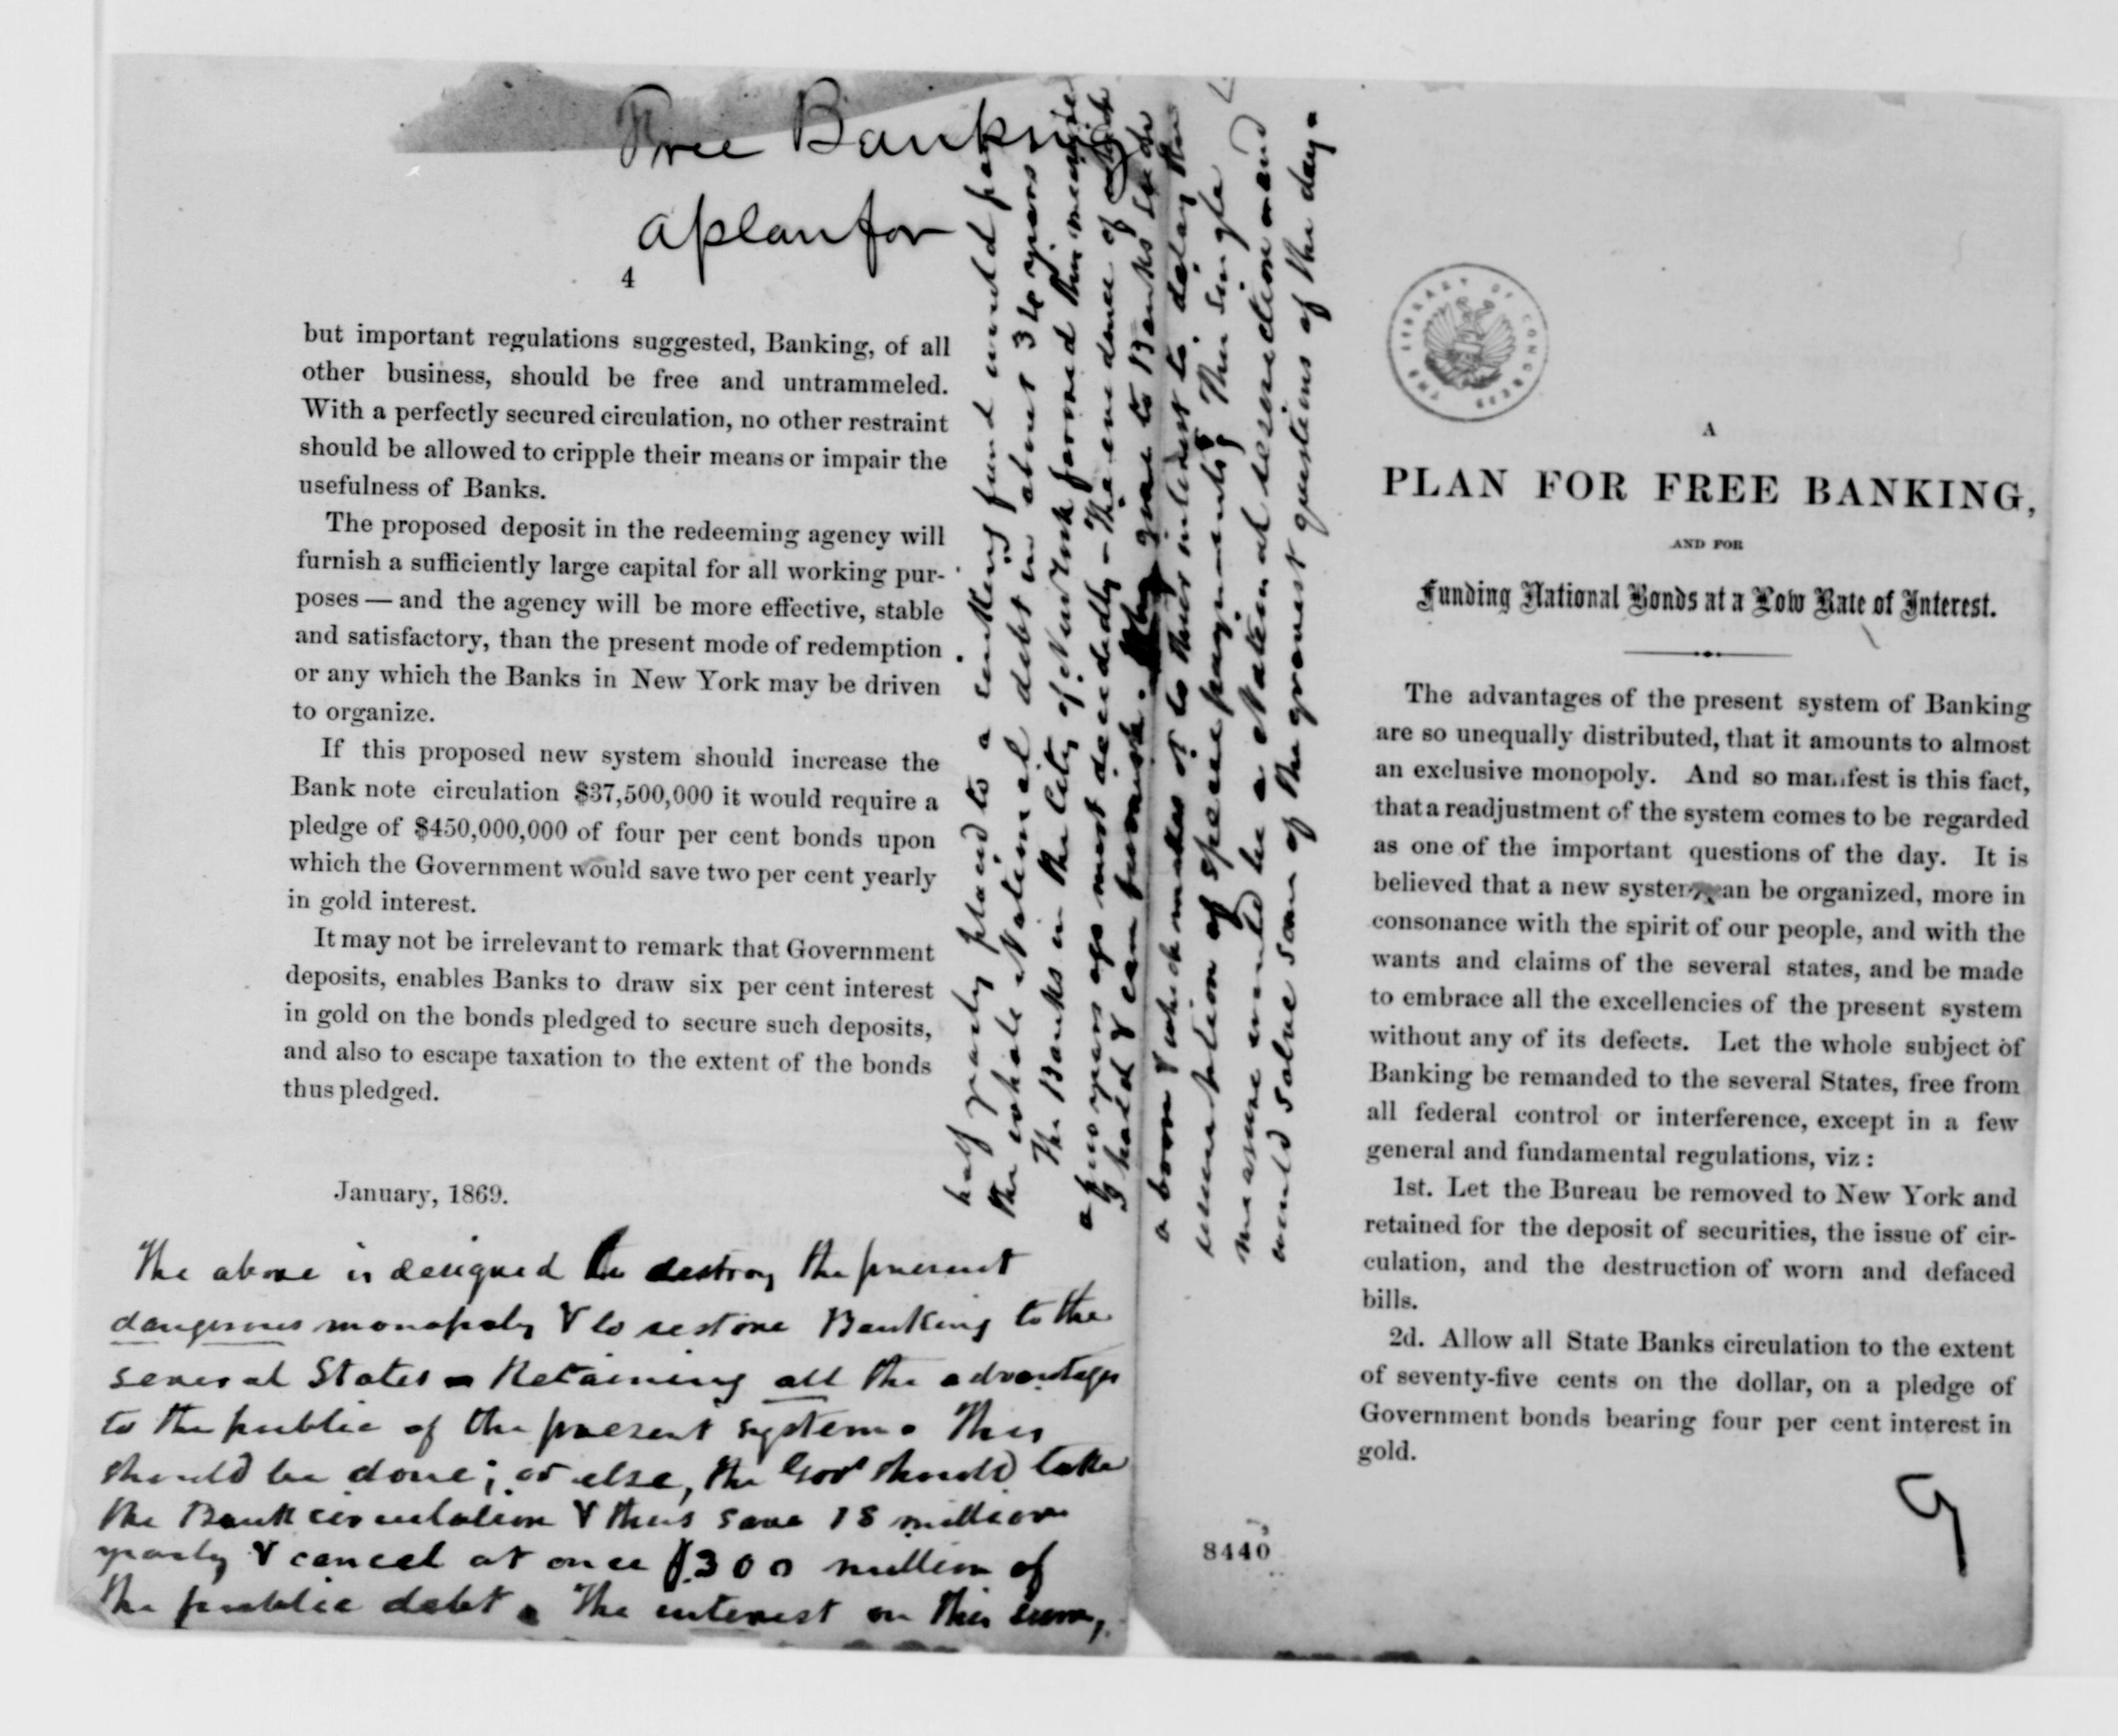 Free Banking
a plan for
4
but important regulations suggested, Banking, of all
other business, should be free and untrammeled.
With a perfectly secured circulation, no other restraint
should be allowed to cripple their means or impair the
usefulness of Banks.
The proposed deposit in the redeeming agency will
furnish a sufficiently large capital for all working pur-
poses — and the agency will be more effective, stable
and satisfactory, than the present mode of redemption
or any which the Banks in New York may be driven
to organize.
If this proposed new system should increase the
Bank note circulation $37,500,000 it would require a
pledge of $450,000,000 of four per cent bonds upon
which the Government would save two per cent yearly
in gold interest.
It may not be irrelevant to remark that Government
deposits, enables Banks to draw six per cent interest
in gold on the bonds pledged to secure such deposits,
and also to escape taxation to the extent of the bonds
thus pledged.
January, 1869.
The above is designed to destroy the present
dangerous monopoly & to restore Banking to the
several States – Retaining all the advantages
to the public of the present system. This
should be done; or else, the Govt should take
the Bank circulation & thus save 18 million
yearly & cancel at once $300 million of
the public debt. The interest on this sum,
half yearly placed to a sinking fund would pay
the whole National debt in about 34 years
The Banks in the City of New York favored this measure
a few years ago most decidedly – The evidence of which
I hold & can furnish. They gave to Banks
a boon & which makes it to their interest to delay the
resumption of specie payments; This single
measure would be a National resurrection and
would solve some of the gravest questions of the day.
THE LIBRARY OF CONGRESS
A
PLAN FOR FREE BANKING,
AND FOR
Funding National Bonds at a Low Rate of Interest.
The advantages of the present system of Banking
are so unequally distributed, that it amounts to almost
an exclusive monopoly. And so manifest is this fact,
that a readjustment of the system comes to be regarded
as one of the important questions of the day. It is
believed that a new system can be organized, more in
consonance with the spirit of our people, and with the
wants and claims of the several states, and be made
to embrace all the excellencies of the present system
without any of its defects. Let the whole subject of
Banking be remanded to the several States, free from
all federal control or interference, except in a few
general and fundamental regulations, viz:
1st. Let the Bureau be removed to New York and
retained for the deposit of securities, the issue of cir-
culation, and the destruction of worn and defaced
bills.
2d. Allow all State Banks circulation to the extent
of seventy-five cents on the dollar, on a pledge of
Government bonds bearing four per cent interest in
gold.
8440